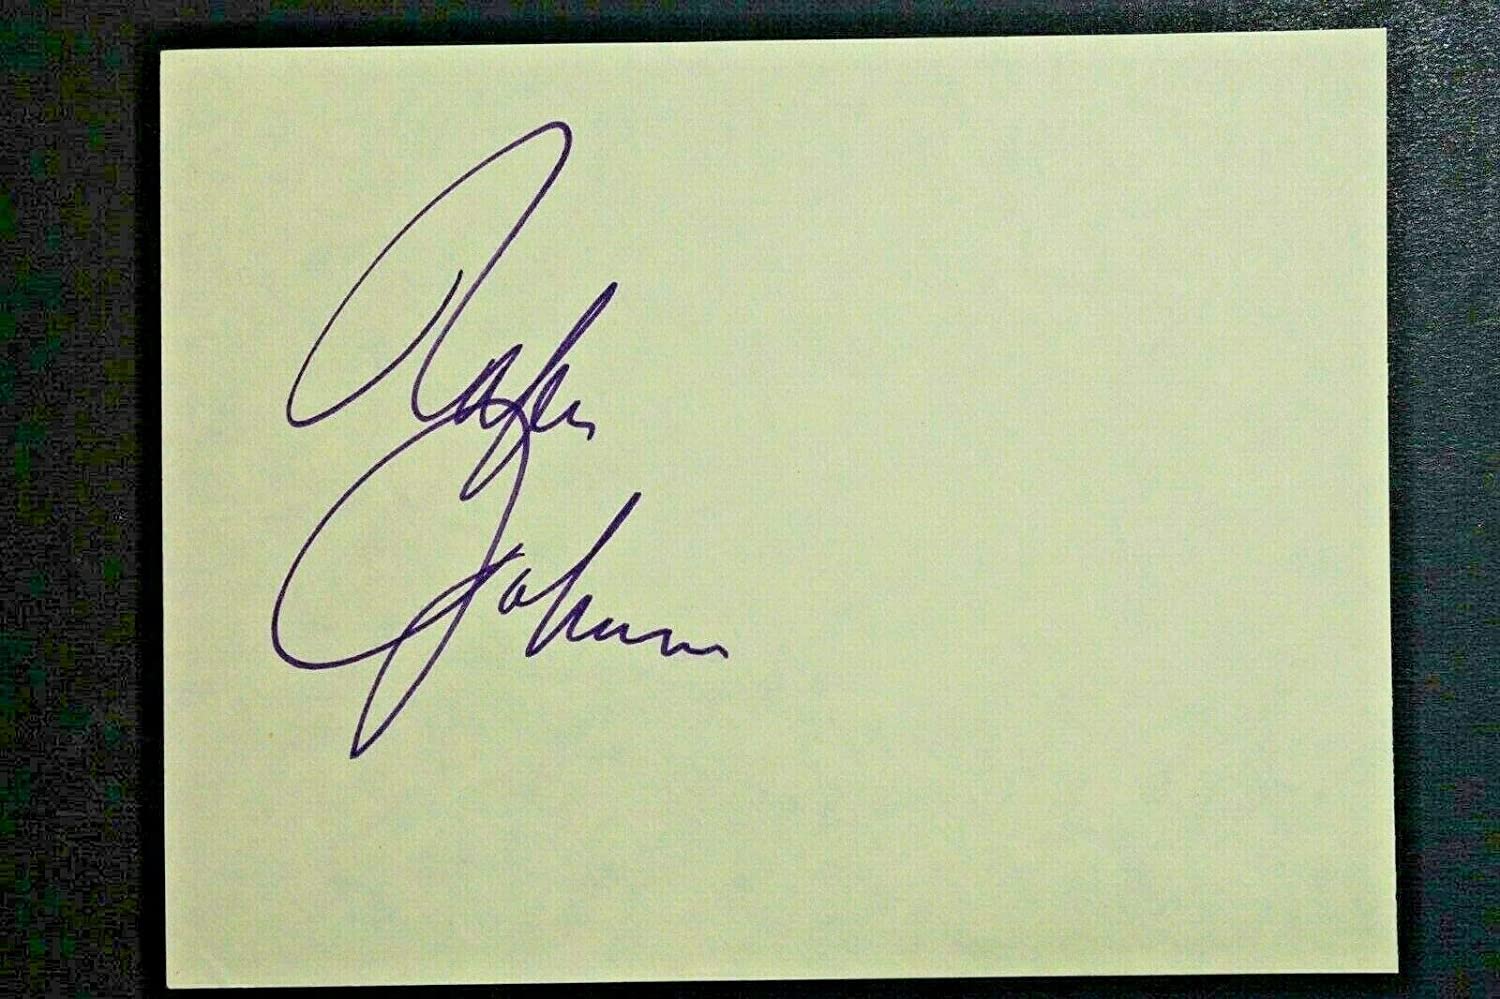 Rafer
Johnson